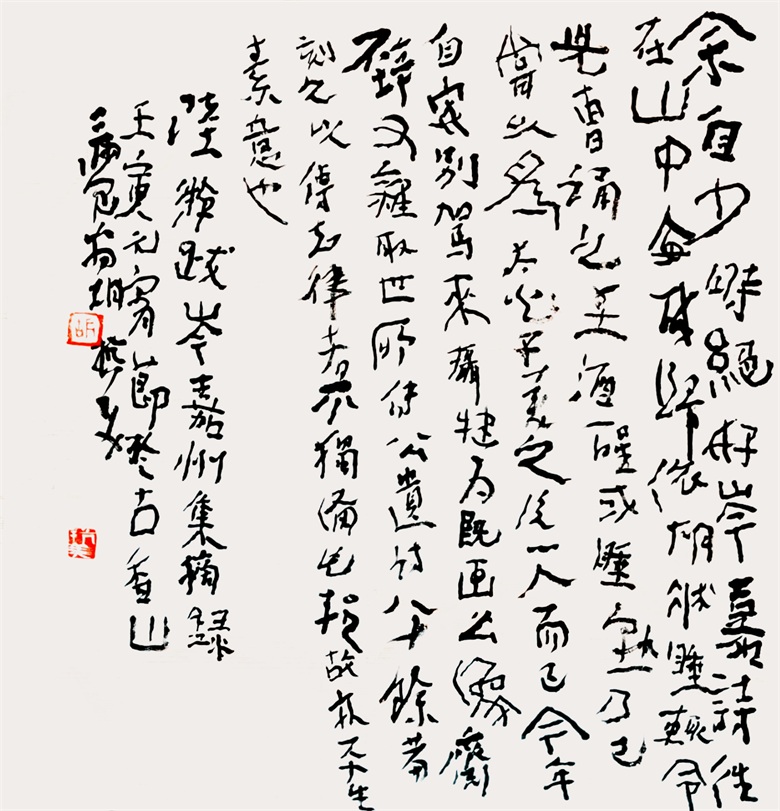 余自少時絕好岑嘉州詩往
在山中每醉歸依胡牀睡輒令
兒曹誦之至酒醒或睡熟乃已
嘗以為太白子美之後一人而已今年
自安別駕來攝犍為既畫公像齋
壁又雜取世所傳公遺詩八十餘篇
刻之以傳知律者不獨備此邦故亦平生
素意也
陸游跋岑嘉州集摘錄
壬寅元宵節於古香山